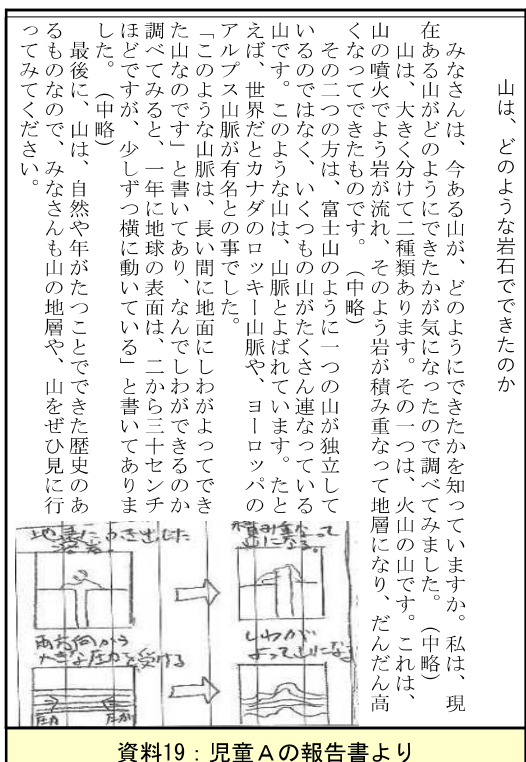 山は、どのような岩石でできたのか
みなさんは、今ある山が、どのようにできたかを知っていますか。私は、現
在ある山がどのようにできたかが気になったので調べてみました。（中略）
山は、大きく分けて二種類あります。その一つは、火山の山です。これは、
山の噴火でよう岩が流れ、そのよう岩が積み重なって地層になり、だんだん高
くなってできたものです。（中略）
その二つの方は、富士山のように一つの山が独立して
いるのではなく、いくつもの山がたくさん連なっている
山です。このような山は、山脈とよばれています。たと
えば、世界だとカナダのロッキー山脈や、ヨーロッパの
アルプス山脈が有名との事でした。
「このような山脈は、長い間に地面にしわがよってでき
た山なのです」と書いてあり、なんでしわができるのか
調べてみると、一年に地球の表面は、二から三十センチ
ほどですが、少しずつ横に動いている」と書いてありま
した。（中略）
最後に、山は、自然や年がたつことでできた歴史のあ
るものなので、みなさんも山の地層や、山をぜひ見に行
ってみてください。
地表にふき出した
溶岩
積み重なって
山になる。
両方向から
大きな圧力を受ける
しわが
よって山になる
圧力
圧力
資料19：児童Ａの報告書より